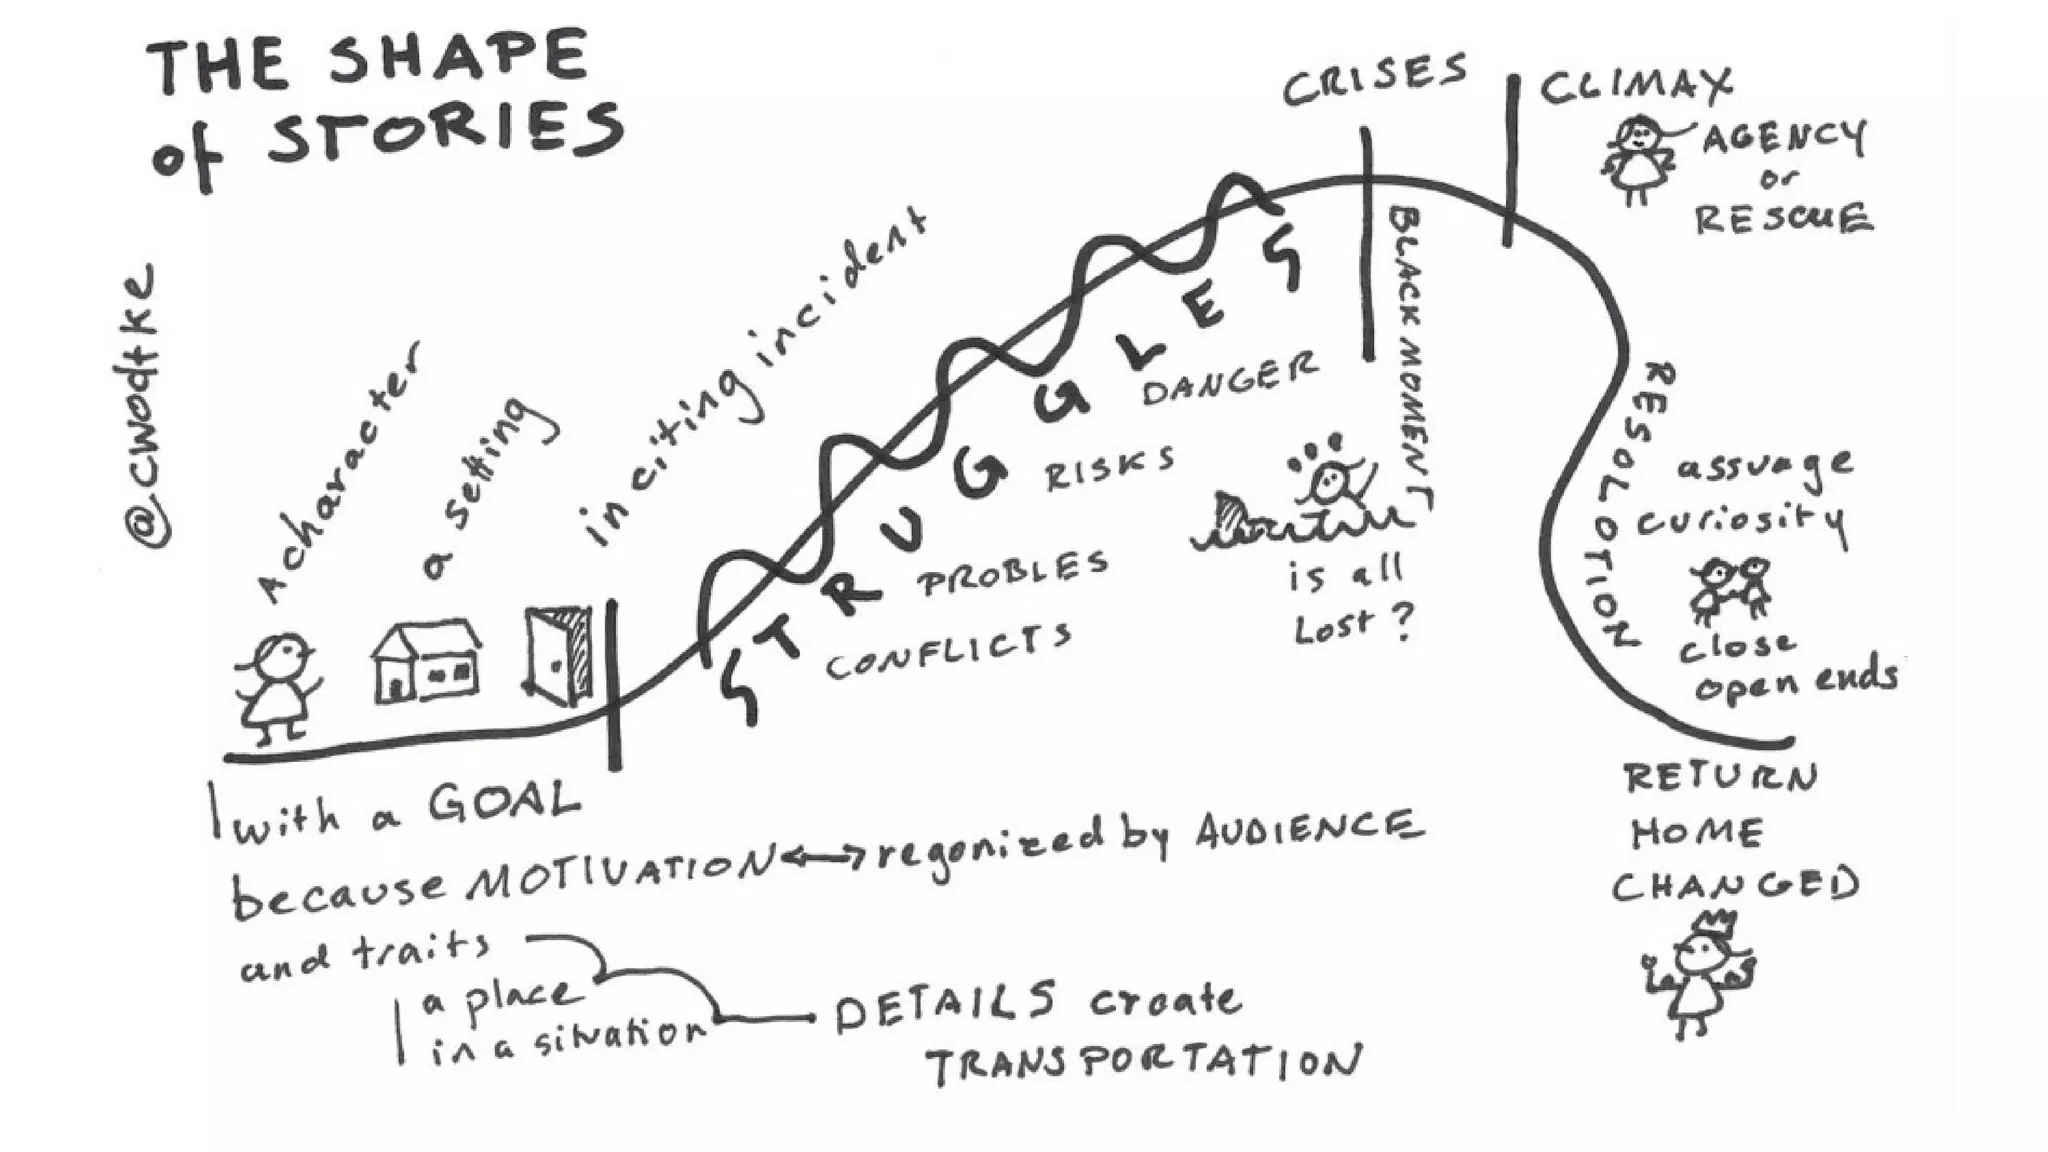 THE SHAPE
of STORIES
@cwodtke
A character
a setting
inciting incident
STRUGGLES
CONFLICTS
PROBLES
RISKS
DANGER
CRISES
BLACK MOMENT
is all
Lost?
CLIMAX
AGENCY
or
RESCUE
RESOLOTION
assuage
curiosity
close
open ends
RETURN
HOME
CHANGED
with a GOAL
because MOTIVATION regonized by AUDIENCE
and traits
a place
in a situation
DETAILS create
TRANSPORTATION